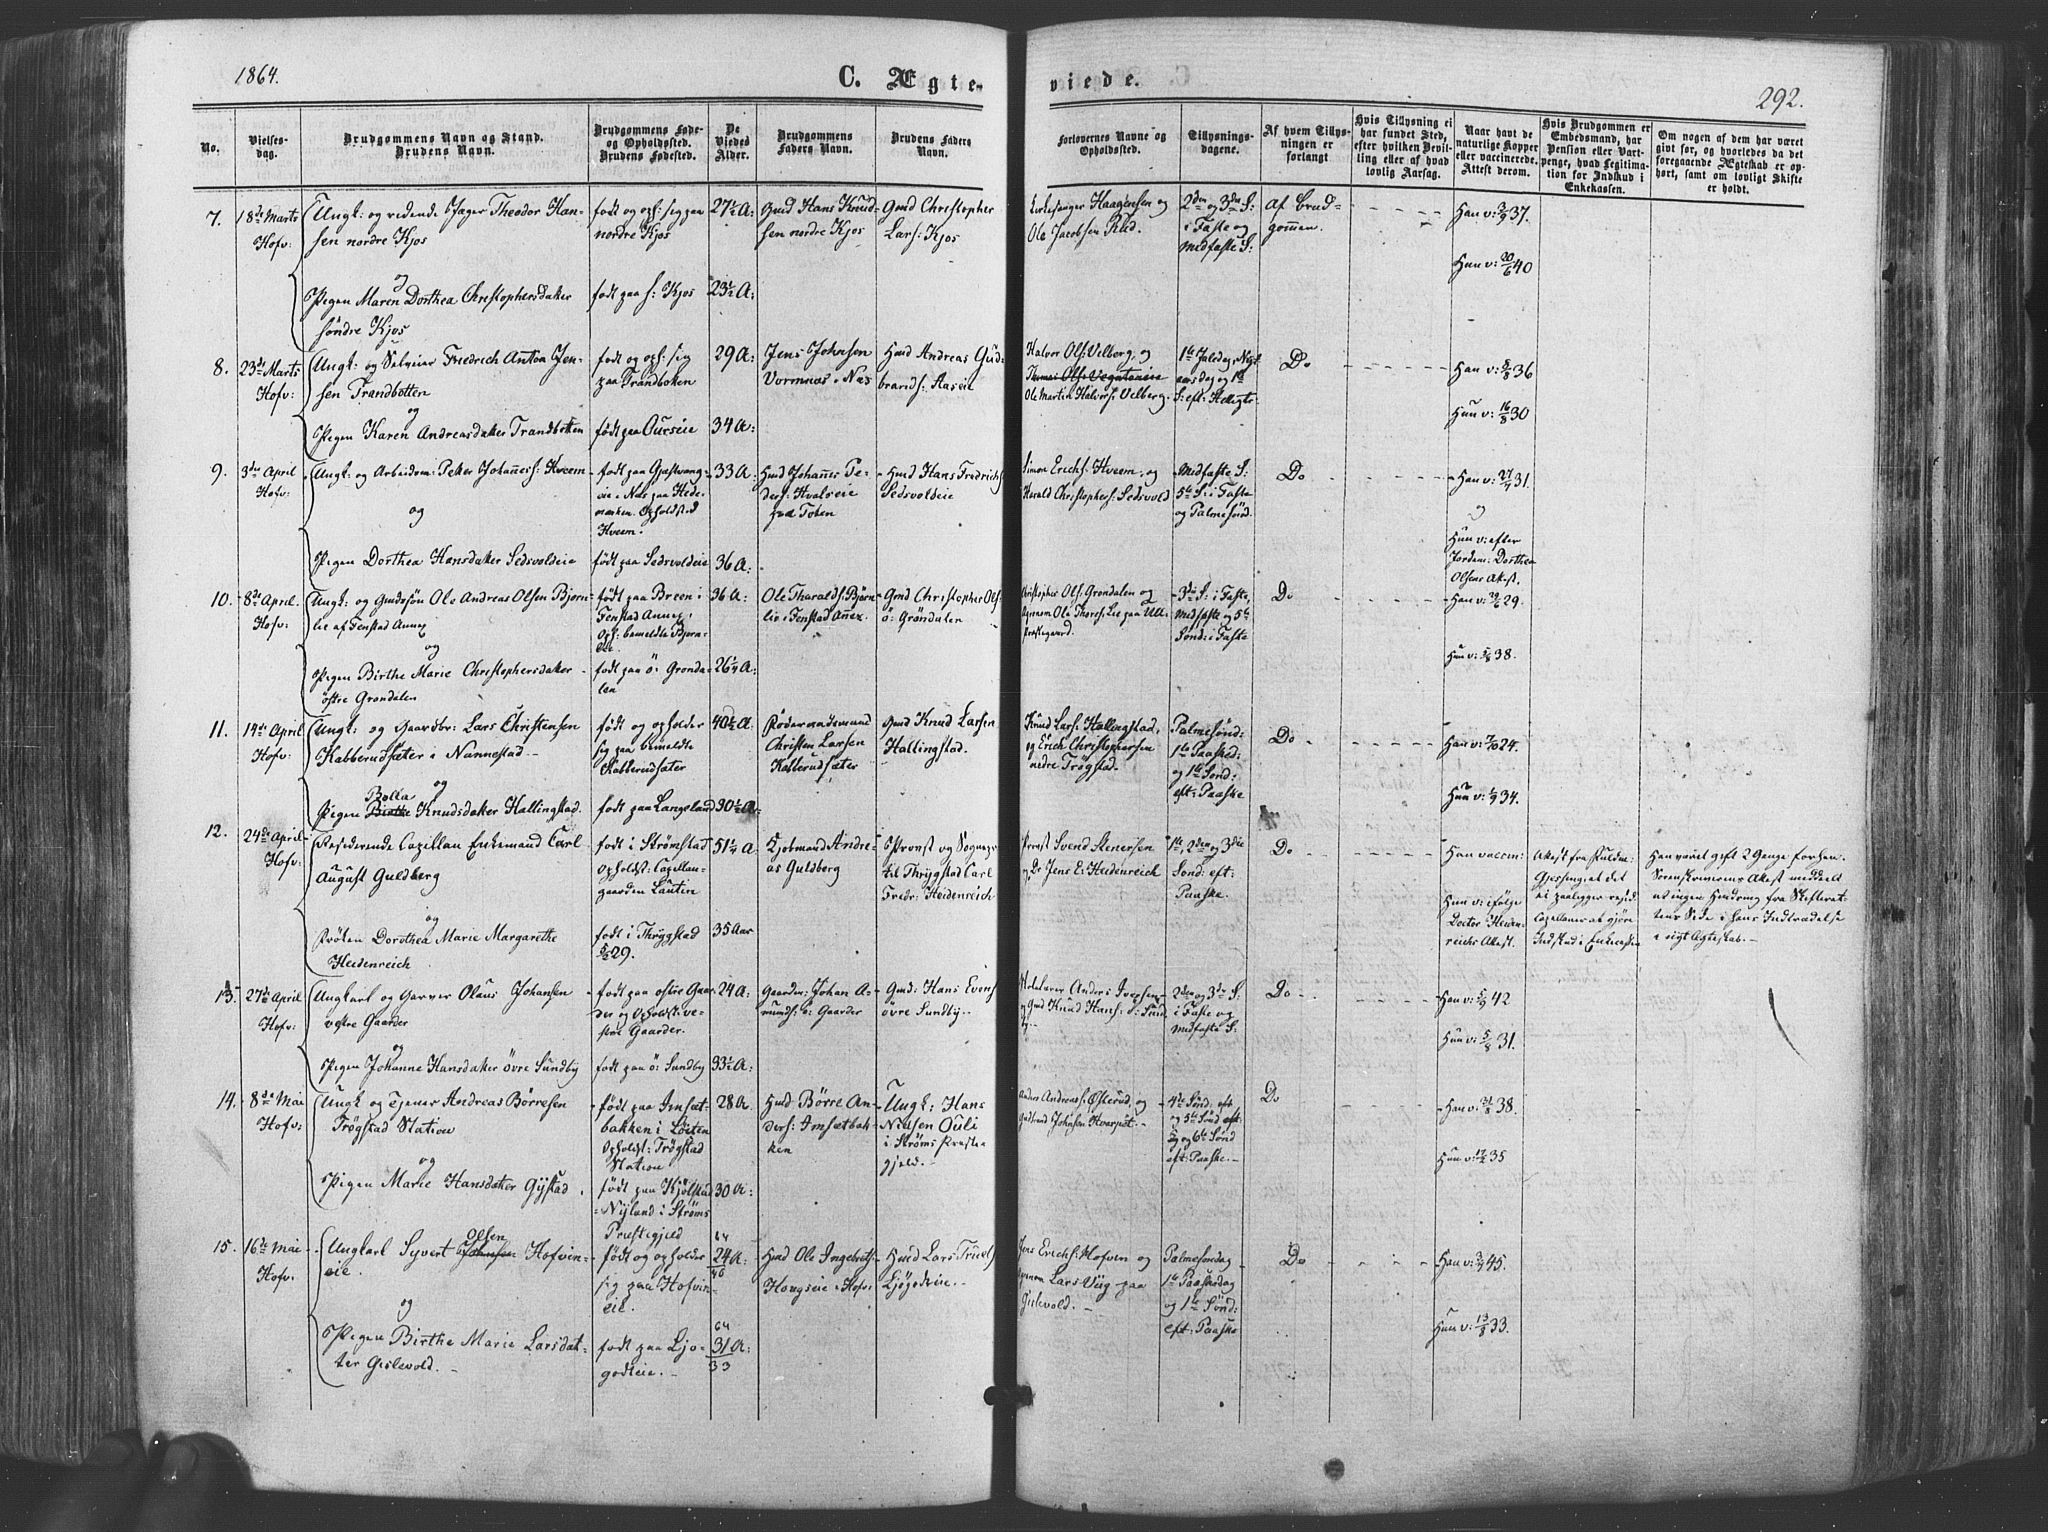 1864.
C. Ægte-
viede.
292.
No.
Vielses-
dag.
Brudgommens Navn og Stand.
Brudens Navn.
Brudgommens Føde-
og Opholdssted.
Brudens Fødested.
De
Viedes
Alder.
Brudgommens
Faders Navn.
Brudens Faders
Navn.
Forlovernes Navne og
Opholdssted.
Tillysnings-
dagene.
Af hvem Tillys-
ningen er
forlangt
Hvis Tillysning ei
har fundet Sted,
efter hvilken Bevil-
ling eller af hvad
lovlig Aarsag.
Naar havt de
naturlige Kopper
eller vaccinerede.
Attest derom.
Hvis Brudgommen er
Embedsmand, har
Pension eller Vart-
penge, hvad Legitima-
tion for Indskud i
Enkekassen.
Om nogen af dem har været
gift før, og hvorledes da det
foregaaende Ægteskab er op-
hørt, samt om lovligt Skifte
er holdt.
7.
18de Marts
Hofv:
Ungk: og ridende Jæger Theodor Han-
sen nordre Kjos
og
Pigen Maren Dorthea Christophersdatter
søndre Kjos
født og oph: sig paa
nordre Kjos
født paa s: Kjos
27½ A:
23½ A:
Gmd Hans Knud-
sen nordre Kjos
Gmd Christopher
Lars: Kjos
Kirkesanger Haagensen og
Ole Jacobsen Rud.
2den og 3die S:
i Faste og
Midfaste S:
Af Brud-
gommen.
Han v: 37.
Hun v: 20/6 40
8.
23de Marts
Hofv:
Ungk: og Selveier Friedrich Anton Jen-
sen Trandbotten
og
Pigen Karen Andreasdatter Trandbotten
født og oph: sig
paa Trandboken
født paa Aurseie
29 A:
34 A:
Jens Johnsen
Vormnæs i Næs
Hmd Andreas Gud-
brands: Aaseie
Halvor Ols: Velberg, og
Ole Martin Halvors: Velberg.
1ste Juledag, Nyt-
aarsdag og 1ste
S: eft: Helligtr.
Do
Han v: 5/8 36
Hun v: 16/8 30
9.
3die April
Hofv:
Ungk: og Arbeidsm: Peter Johannes: Hveem
og
Pigen Dorthea Hansdatter Sedsvoldeie
født paa Gjestvang-
eie i Næs paa Hede-
marken. Opholdsted
Hveem.
født paa Sedsvoldeie
33 A:
36 A:
Hmd Johannes Pe-
ders: Hvalseie
paa Toten
Hmd Hans Fredrichs:
Sedsvoldeie
Simon Erichs: Hveem, og
Harald Christophers: Sedsvold
Midfaste S:
5te S: i Faste
og Palmesønd.
Do
Han v: 27/7 31.
og
Hun v: efter
Jordem: Dorthea
Olsens Attest.
10.
8de April.
Hofv:
Ungk: og Gmdssøn Ole Andreas Olsen Bjørn-
lie af Fenstad Annex
og
Pigen Birthe Marie Christophersdatter
østre Grøndalen
født paa Breen i
Fenstad Annex,
Oph: bemeldte Bjørn-
lie.
født paa ø: Grønda-
len
36 A:
26¼ A:
Ole Tharalds: Bjørn-
lie i Fenstad Anex.
Gmd Christopher Ols:
ø: Grøndalen
Christopher Ols: Grøndalen og
3die S: i Faste,
Midfaste og 5te
Sønd: i Faste
Do
Han v: 29/6 29.
Hun v: 5/8 38.
11.
14de April
Hofv:
Ungk: og Gaardbr: Lars Christensen
Kabberudsæter i Nannestad
og
Bolla
Pigen Birthe Knudsdatter Hallingstad.
født og opholder
sig paa bemeldte
Kabberudsæter
født paa Langeland
40½ A.
30½ A:
Føderaadsmand
Christen Larsen
Kabberudsæter
Gmd Knud Larsen
Hallingstad.
Knud Lars: Hallingstad,
og Erich Christophersen
nedre Trøgstad.
Palmesønd:
1ste Paasked.
og 1ste Sønd:
eft: Paaske
Do
Han v: 7/10 24.
Hun v: 1/9 34.
12.
24de April
Hofv:
Residerende Capellan Enkemand Carl
August Guldberg
og
Frøken Dorothea Marie Margarethe
Heidenreich
født i Strømstad
Opholdst: Capellan-
gaarden Lautin
født i Thrygstad
5/2 29.
51¼ A
35 Aar
Kjøbmand Andre-
as Guldberg
Provst og Sognepr:
til Thrygstad Carl
Fredr: Heidenreich
Provst Svend Stenersen
og Dr Jens E: Heidenreich
1ste, 2den og 3die
Sønd: eft:
Paaske.
Do
Han vaccin:
Hun v: ifølge
Doctor Heiden-
reichs Attest.
Attest fra Fuldm:
Gjessing, at det
ei paaligger resid.
Capellaner at gjøre
Indskud i Enkecassen
Han været gift 2 Gange forhen.
Sorenskriverens Attest meddelt
at ingen Hindring fra Skifteret-
tens Side i hans Indtrædelse
i nyt Ægteskab.
13.
27de April
Hofv:
Ungkarl og Garver Olaus Johansen
vestre Gaarder
og
Pigen Johanne Hansdatter øvre Sundby
født paa østre Gaar-
der og Opholdst: ve-
stre Gaarder.
født paa ø: Sundby
24 A:
33½ A:
Gaardm: Johan A-
munds: ø: Gaarder
Gmd: Hans Evens:
øvre Sundby.
Anders Iversen
og Gmd Knud Hans: ø: Sund-
by.
2den og 3die S:
i Faste og
Midfaste S:
Do
Han v: 5/9 42
Hun v: 5/8 31.
14.
8de Mai
Hofv:
Ungk og Tjener Andreas Børresen
Trøgstad Station
og
Pigen Marie Hansdatter Gystad
født paa Imsæt-
bakken i Løiten
Opholdst: Trøgstad
Station
født paa Kjølstad
Nyland i Strøms
Præstegjeld
28 A.
30 A:
Hmd Børre An-
ders: Imsætbak-
ken
Ungk: Hans
Nielsen Ouli
i Strøms Præste-
gjeld.
Anders Andreas: Østerud, og
Gudbrand Johnsen
4de Sønd: eft
og 5te Sønd eft
og 6te Sønd
eft: Paaske.
Do
Han v: 31/8 38.
Hun v: 35
15.
16de Mai
Hofv:
Olsen
Ungkarl Syvert Johnsen Hofvin-
eie.
og
Pigen Birthe Marie Larsdat-
ter Gislevold.
født og opholder
sig paa Hofvin-
eie.
født paa Ljø-
godteie.
64
24 A:
40
64
31 A:
33
Hmd Ole Ingebrets:
Haugseie i Hofv:
Hmd Lars Truels:
Ljøgodteie.
Jens Erichs: Hofvin og
Lars Viig paa
Gislevold.
Palmesøndag
1ste Paaskedag
og 1ste Sønd:
eft: Paaske
Do
Han v: 45.
Hun v: 13/8 33.